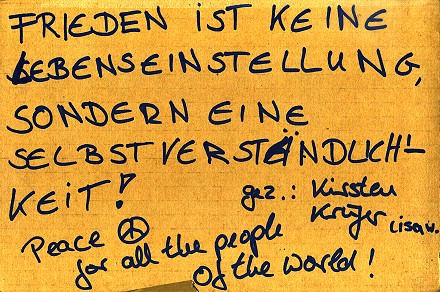 FRIEDEN IST KEINE
LEBENSEINSTELLUNG,
SONDERN EINE
SELBSTVERSTÄNDLICH-
KEIT!
gez.: Kirsten
Krüger Lisa W.
Peace ☮
for all the people
Of the World!